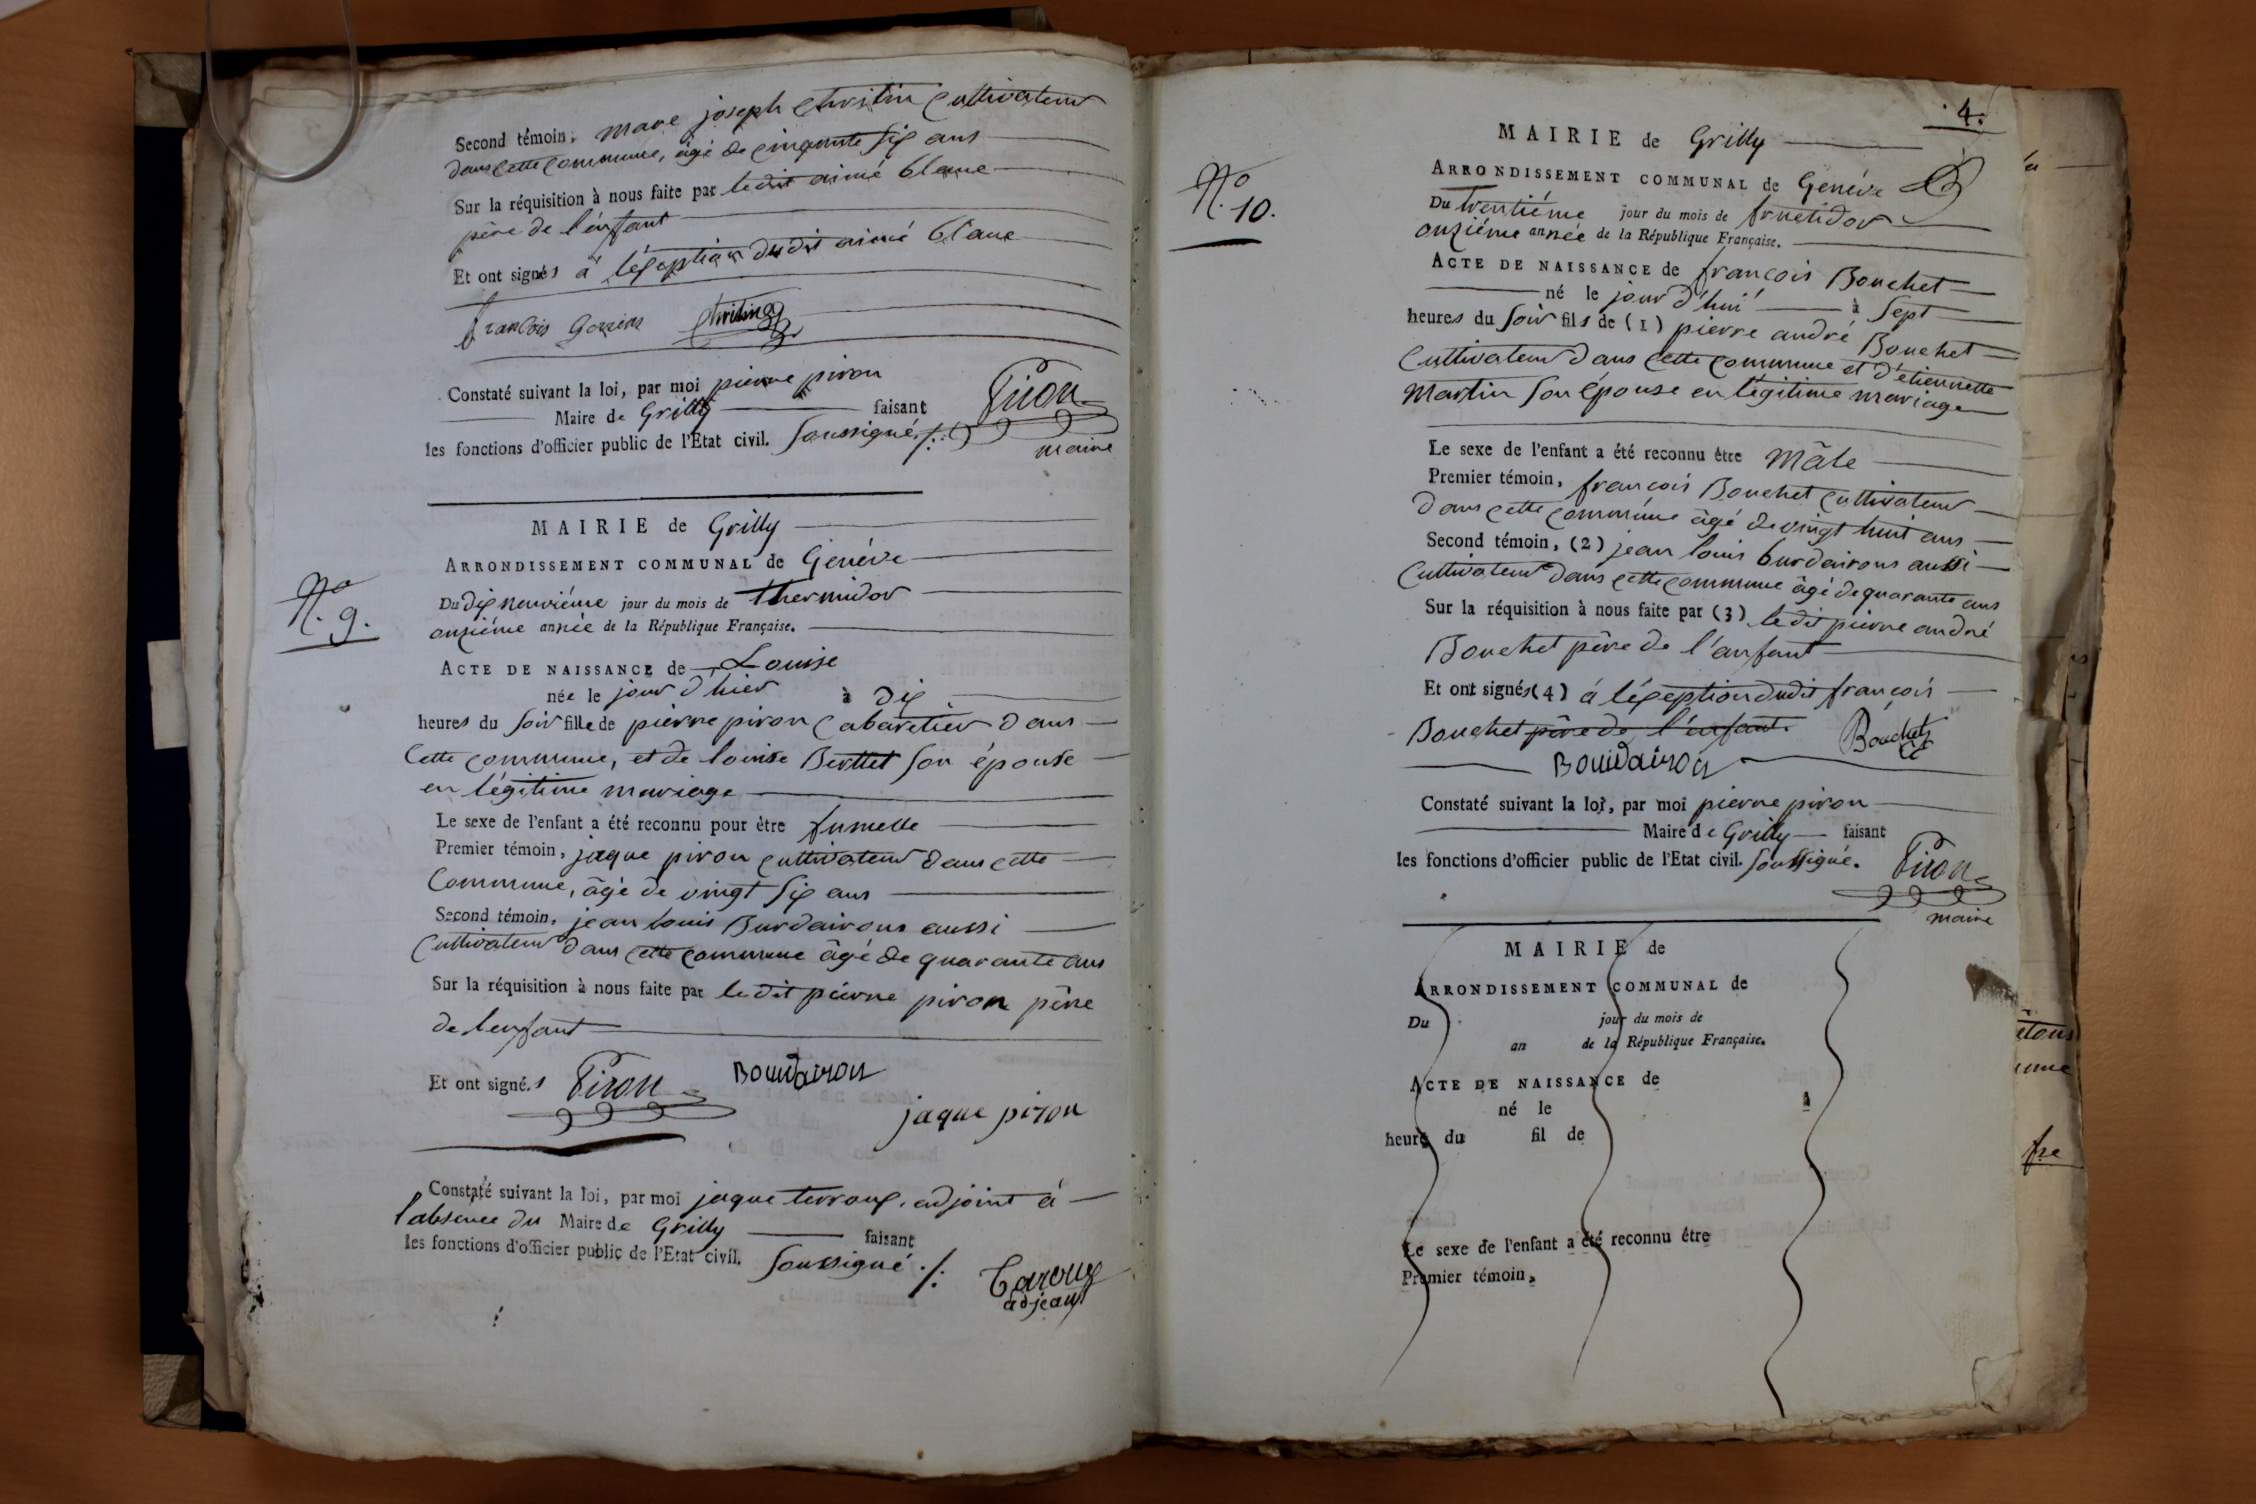 Second témoin, marc joseph Christin Cultivateur
dans cette commune, âgé de cinquante six ans
Sur la réquisition à nous faite par ledit aimé blanc
père de l'enfant
Et ont signés à l'éxeption dudit aimé blanc
françois Christin
Constaté suivant la loi, par moi pierre piron
Maire de Grilly faisant
les fonctions d'officier public de l'Etat civil. Soussigné ./.
Piron
maire
N.o 9.
MAIRIE de Grilly
ARRONDISSEMENT COMMUNAL de Genéve
Du dix neuviéme jour du mois de thermidor
onziéme année de la République Française.
ACTE DE NAISSANCE de Louise
née le jour d'hier à dix
heures du soir fille de pierre piron Cabaretier dans
Cette commune, et de louise Berthet son épouse
en légitime mariage
Le sexe de l'enfant a été reconnu pour être fumelle
Premier témoin, jaque piron cultivateur dans cette
Commune, âgé de vingt six ans
Second témoin, jean louis Burdairons aussi
Cultivateur dans cette commune âgé de quarante ans
Sur la réquisition à nous faite par ledit pierre piron père
de lenfant
Et ont signé.s Piron Bourdairon
jaque piron
Constaté suivant la loi, par moi jaque terroux, adjoint à
l'absence du Maire de Grilly faisant
les fonctions d'officier public de l'Etat civil. Soussigné ./.
Taroux
adjeant
4.
N.o 10.
MAIRIE de Grilly
ARRONDISSEMENT COMMUNAL de Genéve
Du trentiéme jour du mois de fructidor
onziéme année de la République Française.
ACTE DE NAISSANCE de françois Bouchet
né le jour d'hui à Sept
heures du soir fils de (1) pierre andré Bouchet
Cultivateur dans cette commune et d'étiennette
Martin son épouse en légitime mariage
Le sexe de l'enfant a été reconnu être Mâle
Premier témoin, françois Bouchet Cultivateur
dans cette commune âgé de vingt huit ans
Second témoin, (2) jean louis burdairons aussi
Cultivateur dans cette commune âgé de quarante ans
Sur la réquisition à nous faite par (3) ledit pierre andré
Bouchet père de l'anfant
Et ont signés (4) à l'éxeption dudit françois
Bouchet père de l'enfant. Bouchet
Bourdairon
Constaté suivant la loi, par moi pierre piron
Maire de Grilly faisant
les fonctions d'officier public de l'Etat civil. Soussigné.
Piron
maire
MAIRIE de
ARRONDISSEMENT COMMUNAL de
Du jour du mois de
an de la République Française.
ACTE DE NAISSANCE de
né le à
heure du fil de
Le sexe de l'enfant a été reconnu être
Premier témoin,